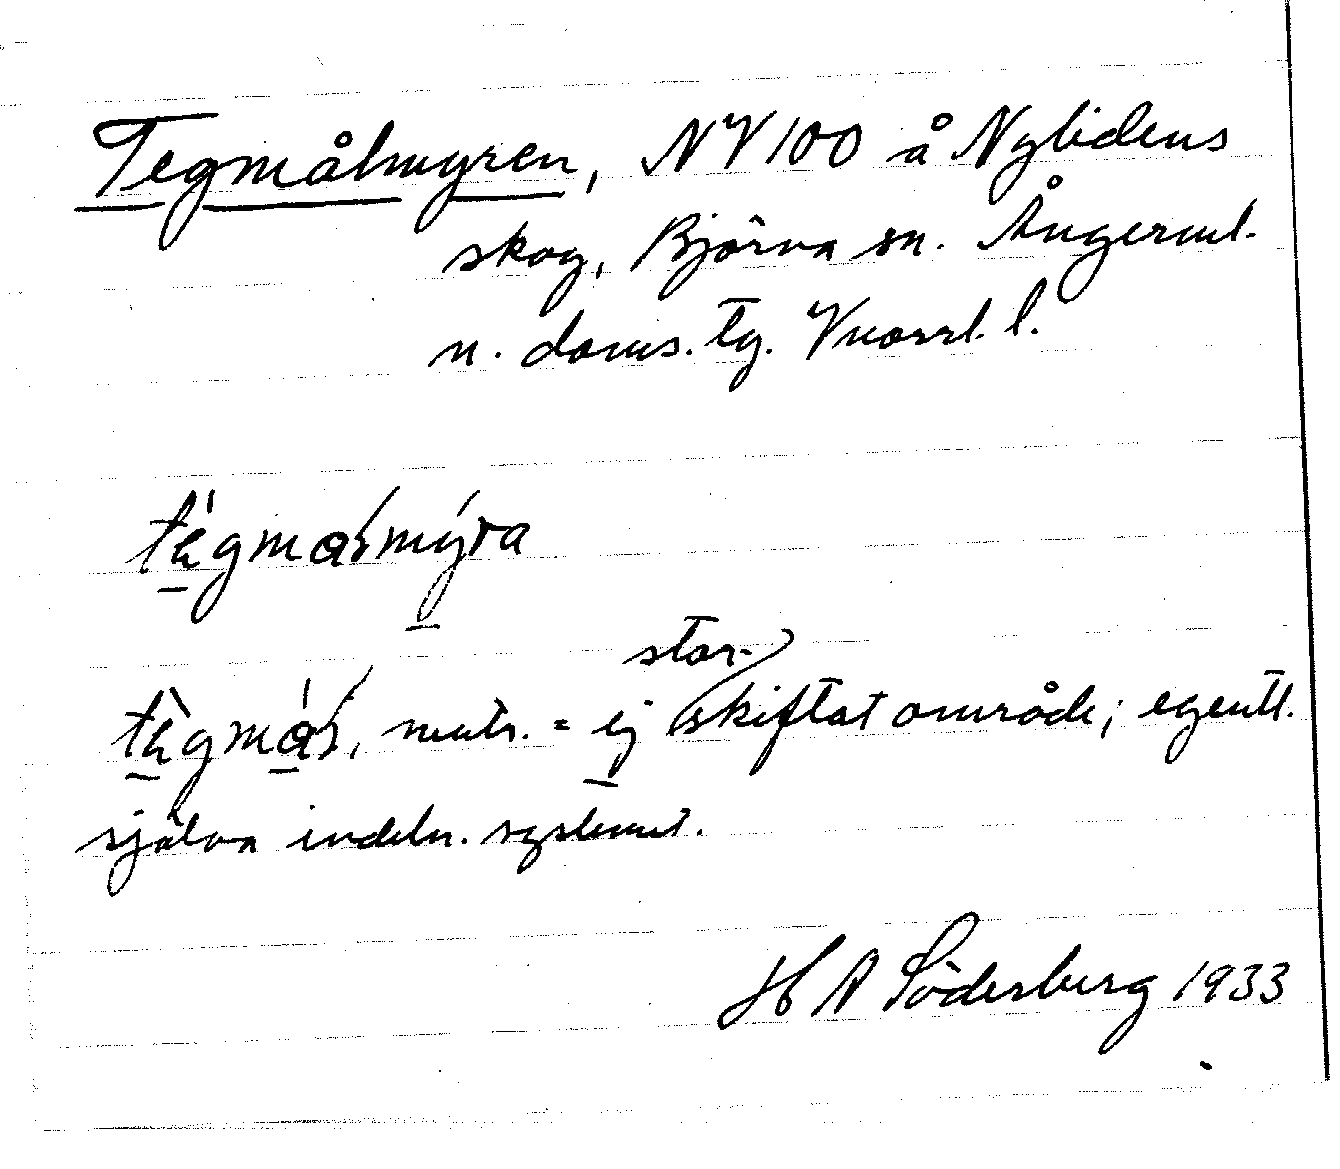 Tegmålmyren, NV 100 å Nylidens
skog, Björna sn. Ångerml.
n. doms. tg. Vnorrl. l.
tegmasmyra
stor-
tegmas, neutr. = ej skiftat område; egentl.
själva indeln. systemet.
H A Söderberg 1933